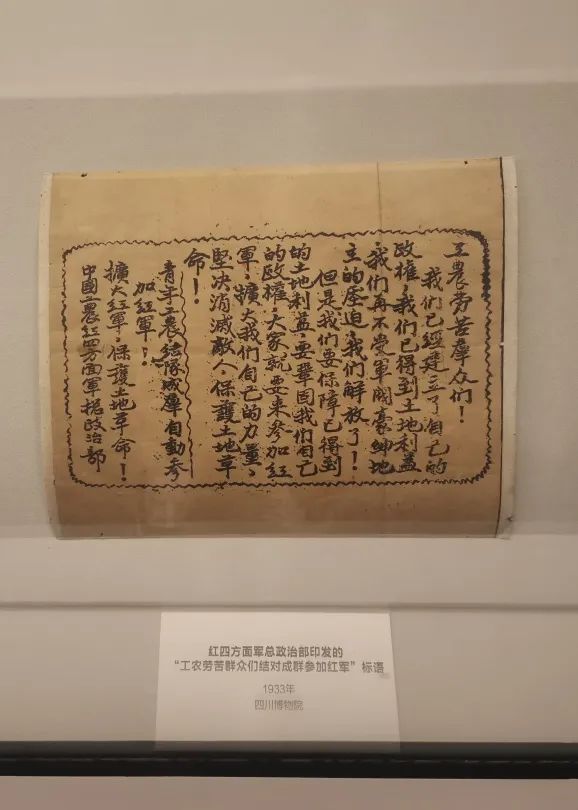 工農劳苦羣众们！
我们已經建立了自己的
政權，我们已得到土地利益
，我们再不受軍阀豪紳地
主的压迫，我们解放了！
但是我们要保障已得到
的土地利益，要鞏固我们自己
的政權，大家就要来参加红
軍，擴大我们自己的力量，
堅决消滅敵人，保護土地革
命！
青年工農结隊成羣自動参
加红軍！
擴大红軍，保護土地革命！
中國工農红四方面軍总政治部
红四方面军总政治部印发的
“工农劳苦群众们结对成群参加红军”标语
1933年
四川博物院